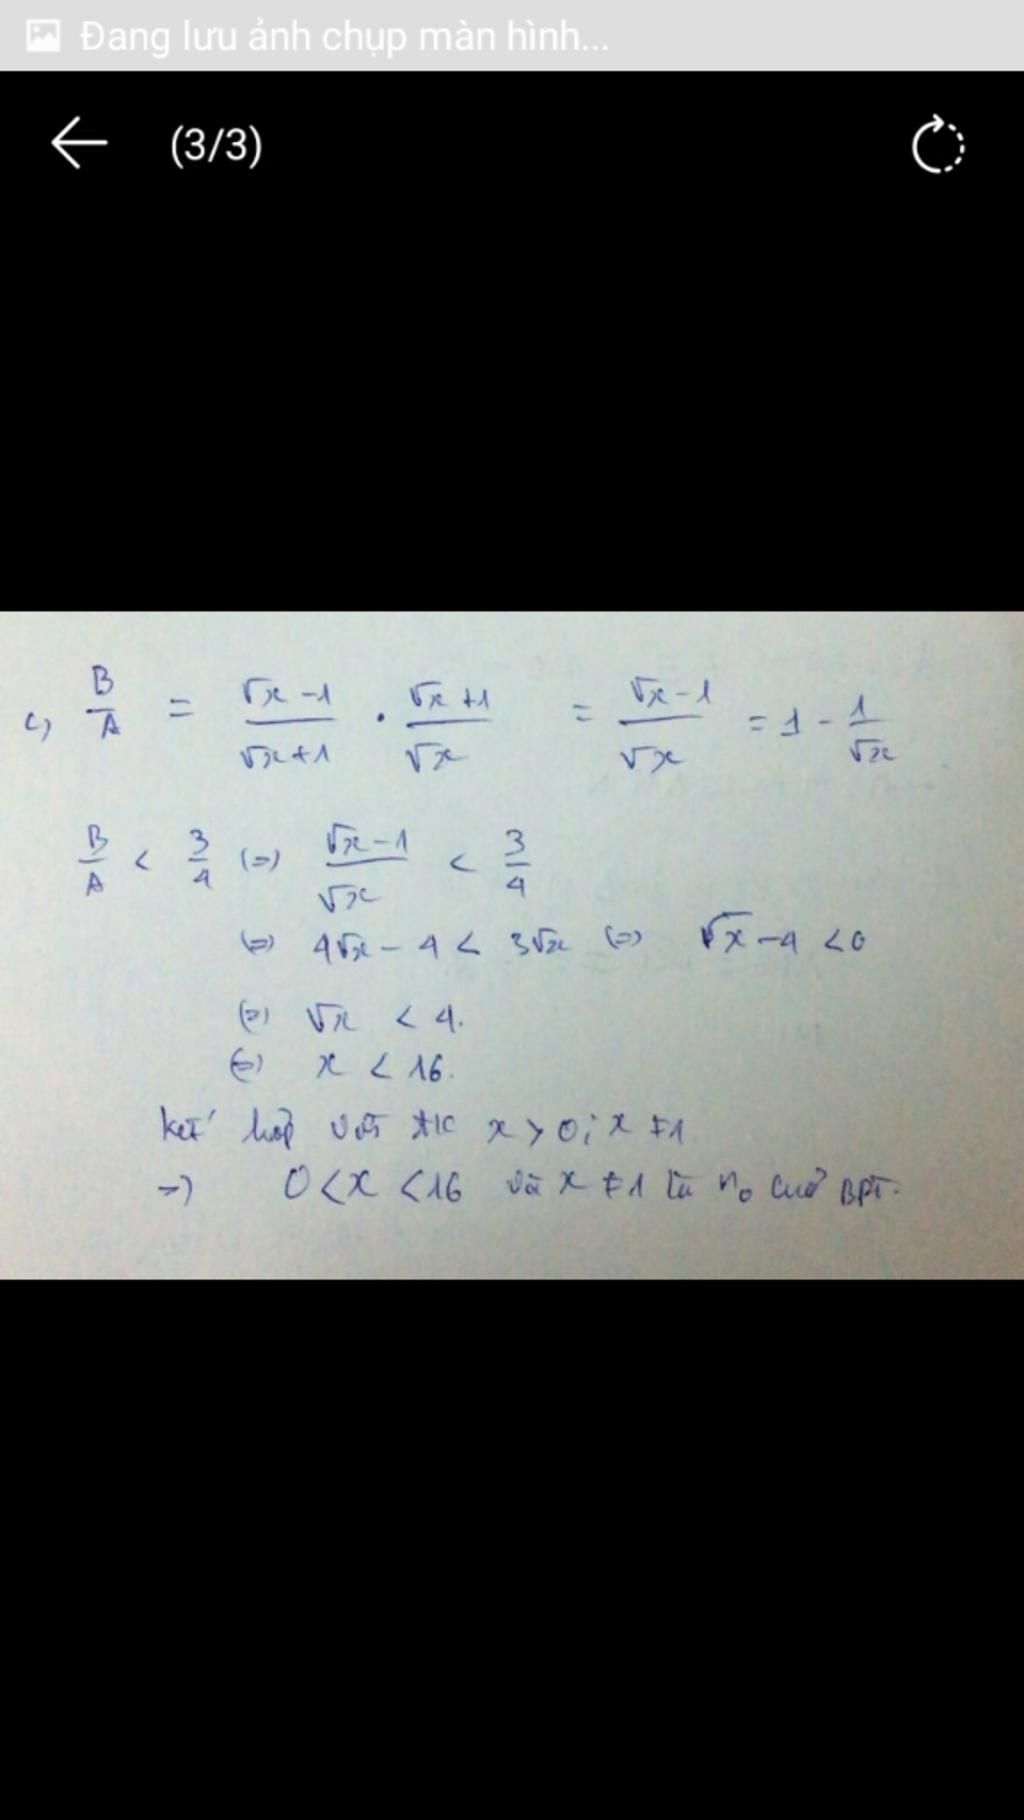 Đang lưu ảnh chụp màn hình...
(3/3)
c, B/A = (√x - 1)/(√x + 1) . (√x + 1)/√x = (√x - 1)/√x = 1 - 1/√x
B/A < 3/4 (=) (√x - 1)/√x < 3/4
(=) 4√x - 4 < 3√x (=) √x - 4 < 0
(=) √x < 4.
(=) x < 16.
kết hợp với đk x > 0 ; x ≠ 1
=) 0 < x < 16 và x ≠ 1 là n₀ của BPT.